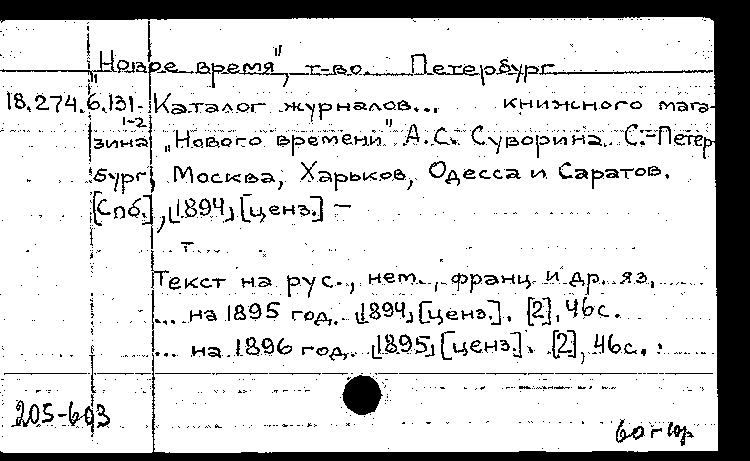 "Новое время", т-во. Петербург
18.274.6.131. Каталог журналов... книжного мага-
1-2
зина „Нового времени" А.С. Суворина. С.-Петер-
бург, Москва, Харьков, Одесса и Саратов.
[Спб.], 1894 [ценз.] –
т.
Текст на рус., нем., франц и др. яз.
... на 1895 год. 1894 [ценз.]. [2], 46с.
... на 1896 год. 1895 [ценз.]. [2], 46с.
205-603